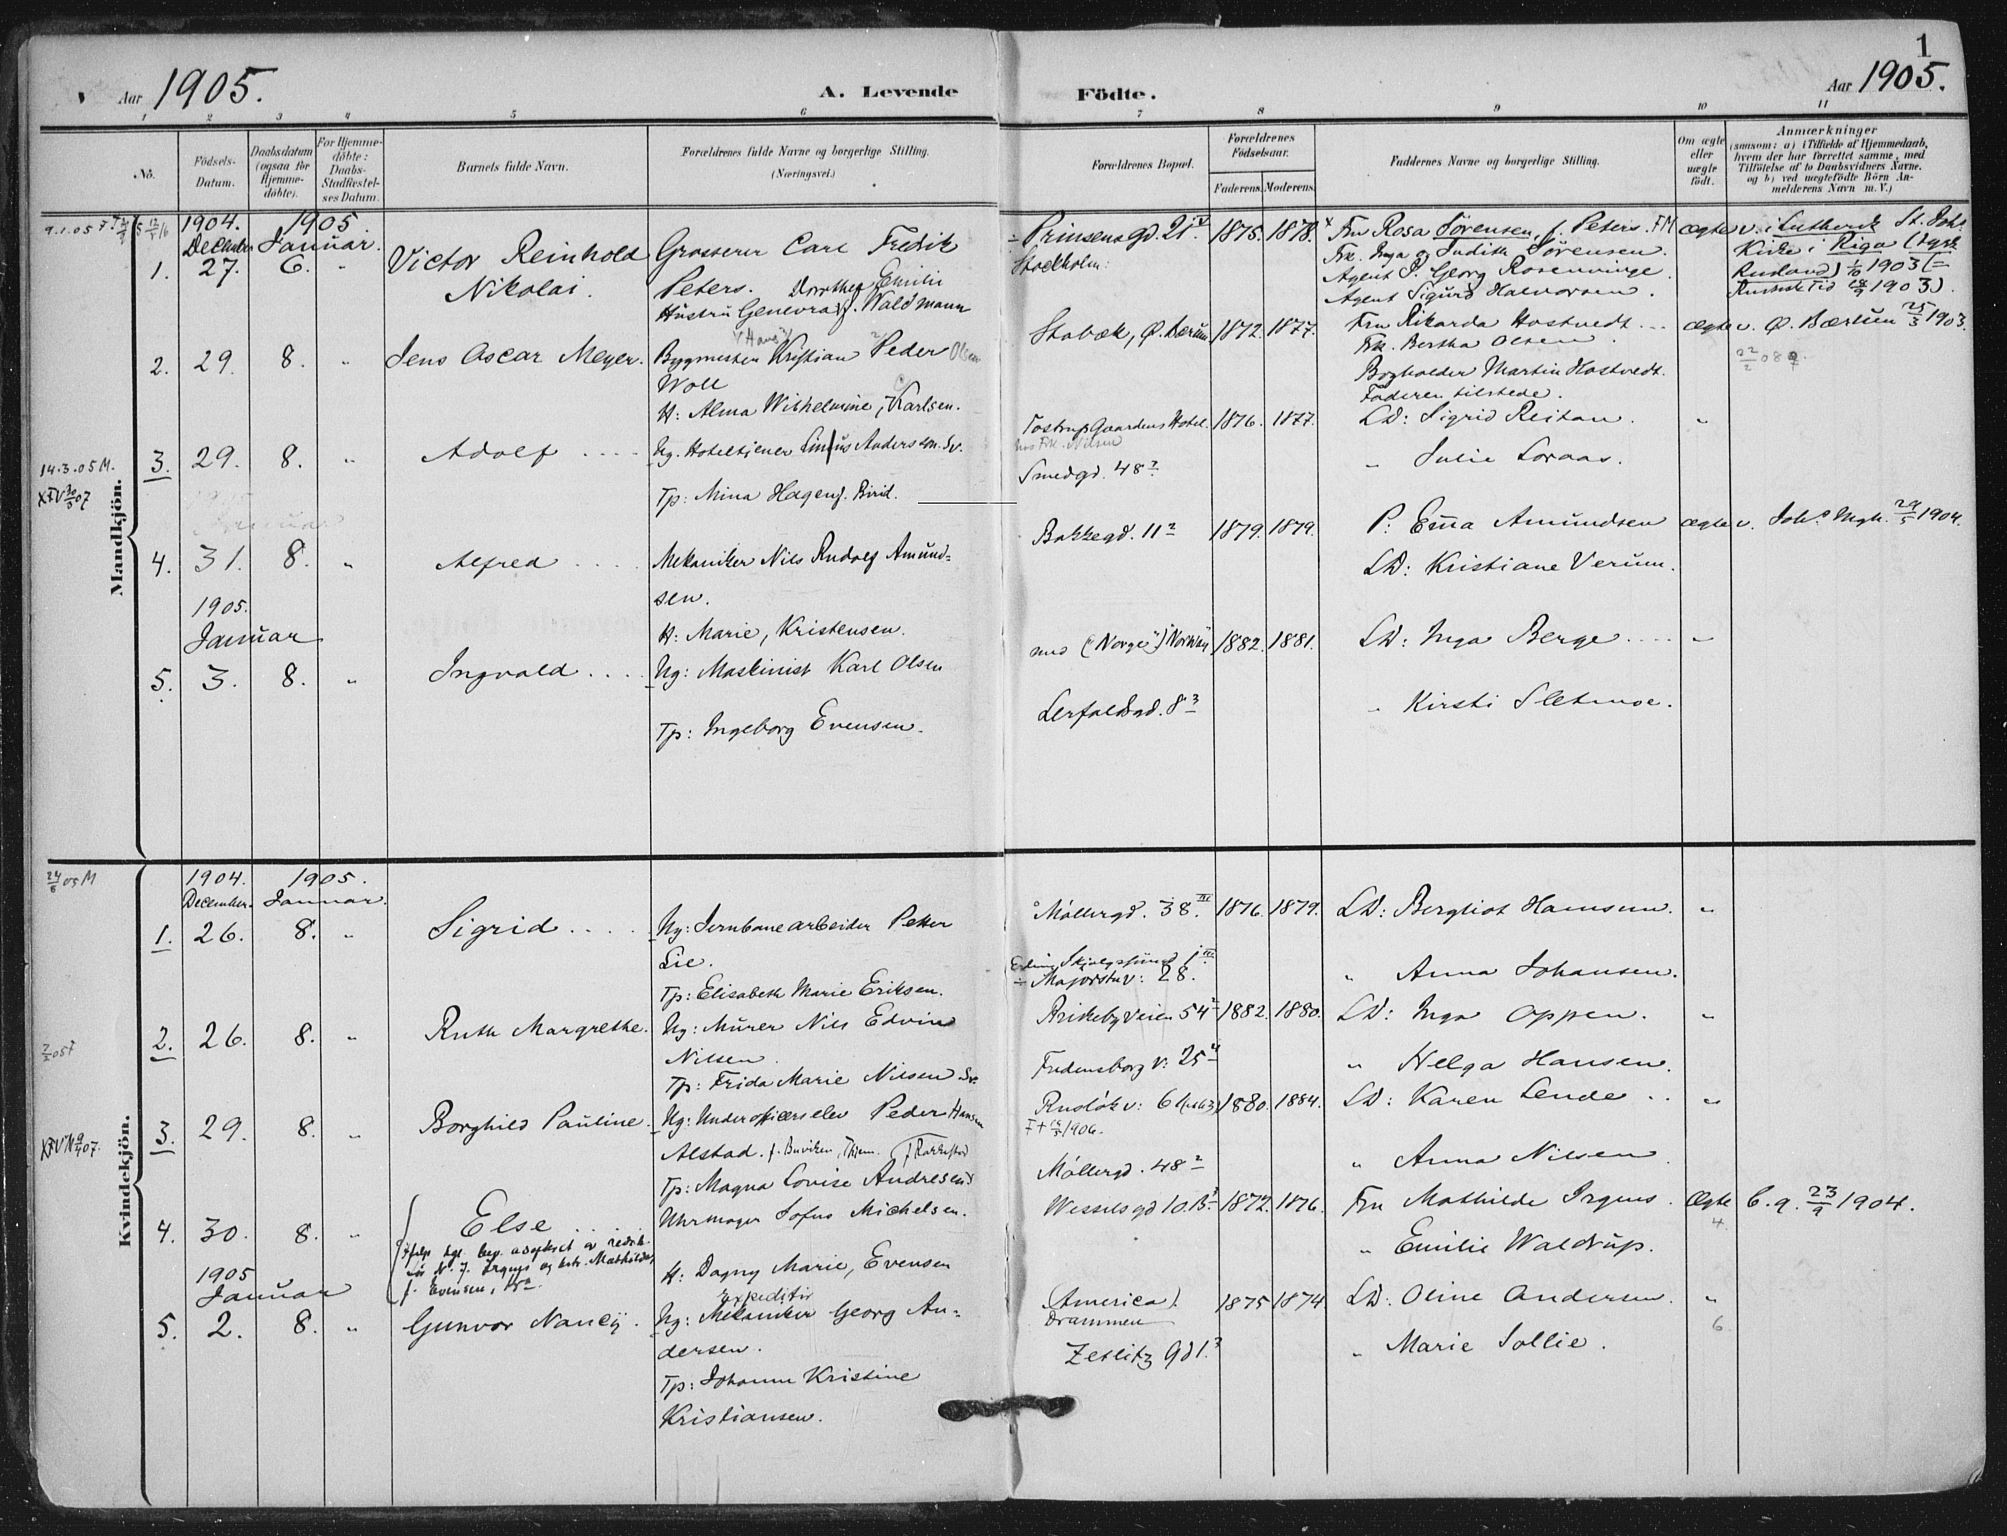 1
Aar 1905.
A. Levende Födte.
Aar 1905.
1 2 3 4 5 6 7 8 9 10 11
No.
Födsels-
Datum.
Daabsdatum
(ogsaa for
Hjemme-
döbte).
For Hjemme-
döbte:
Daabs-
Stadfæstel-
ses Datum.
Barnets fulde Navn.
Forældrenes fulde Navne og borgerlige Stilling.
(Næringsvei.)
Forældrenes Bopæl.
Forældrenes
Födselsaar.
Faderens. Moderens.
Faddernes Navne og borgerlige Stilling.
Om ægte
eller
uægte
födt.
Anmærkninger
(saasom: a) i Tilfælde af Hjemmedaab,
hvem der har forrettet samme, med
Tilföielse af to Daabsvidners Navne.
og b) ved uægtefödte Börn An-
melderens Navn m. V.)
Mandkjön.
1904. 1905.
December Januar.
1. 27. 6. "
Victor Reinhold
Nikolai.
Grosserer Carl Fredik
Peters. Dorthea Emilie
Hustru Genevra f. Waldmann
Prinsens gd. 21
Stockholm:
1875. 1878.
Fru Rosa Sørensen, f. Peters. FM
Frk. Inga og Judith Sørensen.
Agent P. Georg Rosenvinge.
Agent Sigurd Halvorsen.
ægte
v. i Luthersk St. Joh.
Kirke i Riga (tysk
Rusland) 1/10 1903 (=
Russisk Tid 18/9 1903).
2. 29. 8. "
Jens Oscar Meyer.
Bygmester Kristian Peder Olsen
Woll
H: Alma Wilhelmine, Karlsen.
Stabæk, Ø. Bærum
1872. 1877.
Fru Rikarda Hostvedt...
Frk. Bertha Olsen.
Bogholder Martin Hostvedt.
Faderen tilstede.
ægte
v. Ø. Bærum 25/3 1903.
14.3.05 M.
3. 29. 8. "
Adolf ....
Ug. Hoteltjener Linus Andersson. Sv.
Tp: Mina Hagen f. Biri.
Tostrup Gaardens Hotel.
hos Frk. Nilsen
Smedgd. 48 2
1876. 1877.
LD: Sigrid Reitan. "
" Julie Loraas.
4. 31. 8. "
Alfred ....
Mekaniker Nils Rudolf Amund-
sen.
H: Marie, Kristensen.
Bakkegd. 11 2
1879. 1879.
P: Emma Amundsen
LD: Kristiane Verum.
ægte
v. Joh.s Mgh. 29/5 1904.
1905.
Januar
5. 3. 8. "
Ingvald ....
Ug: Maskinist Karl Olsen
Tp: Ingeborg Evensen.
("Norge") "Norway"
Lerfaldsgd. 8 3
1882. 1881.
LD: Inga Berge .... "
" Kirsti Sletmoe.
Kvindekjön.
1904. 1905.
December. Januar.
1. 26. 8. "
Sigrid ....
Ug: Jernbanearbeider Petter
Lie.
Tp: Elisabeth Marie Eriksen.
Møllergd. 38. III
Erling Skjalgssøns 1 III
Majorstuv: 28.
1876. 1879.
LD: Bergliot Hamsun. "
" Anna Johansen.
2. 26. 8. "
Ruth Margrethe.
Ug: Murer Nils Edvin
Nilsen.
Tp: Frida Marie Nilsen Sv.
Arkebyveien 54 2
Fredensborg v: 25 4
1882. 1880.
LD: Inga Oppen. "
" Helga Hansen.
3. 29. 8. "
Borghild Pauline.
Ug: Underofficerselev Peder Hansen
Alstad. f. Buviken, Thjem.
Tp: Magna Lovise Andresen
Rusløkv: 6
1906.
Møllergd. 48 2
1880. 1884.
LD: Karen Lende .. "
" Anna Nilsen.
4. 30. 8. "
Else ....
ifølge kgl. bev. adopteret av redak-
tør N. J. Irgens og hstr. Mathilde,
f. Evensen,
Uhrmager Sofus Michelsen.
H: Dagny Marie, Evensen
Wesselsgd 10.B. 3
1872. 1876.
Fru Mathilde Irgens.
" Emilie Waldrup.
Ægte
4
C. g. 23/9 1904.
1905
Januar
5. 2. 8. "
Gunvor Nancy.
Expeditør
Ug: Mekaniker Georg An-
dersen.
Tp: Johanne Kristine
Kristiansen.
(America).
Drammen
Zetlitz gd 1. 3
1875 1874
LD: Oline Andersen. "
6
" Marie Sollie.